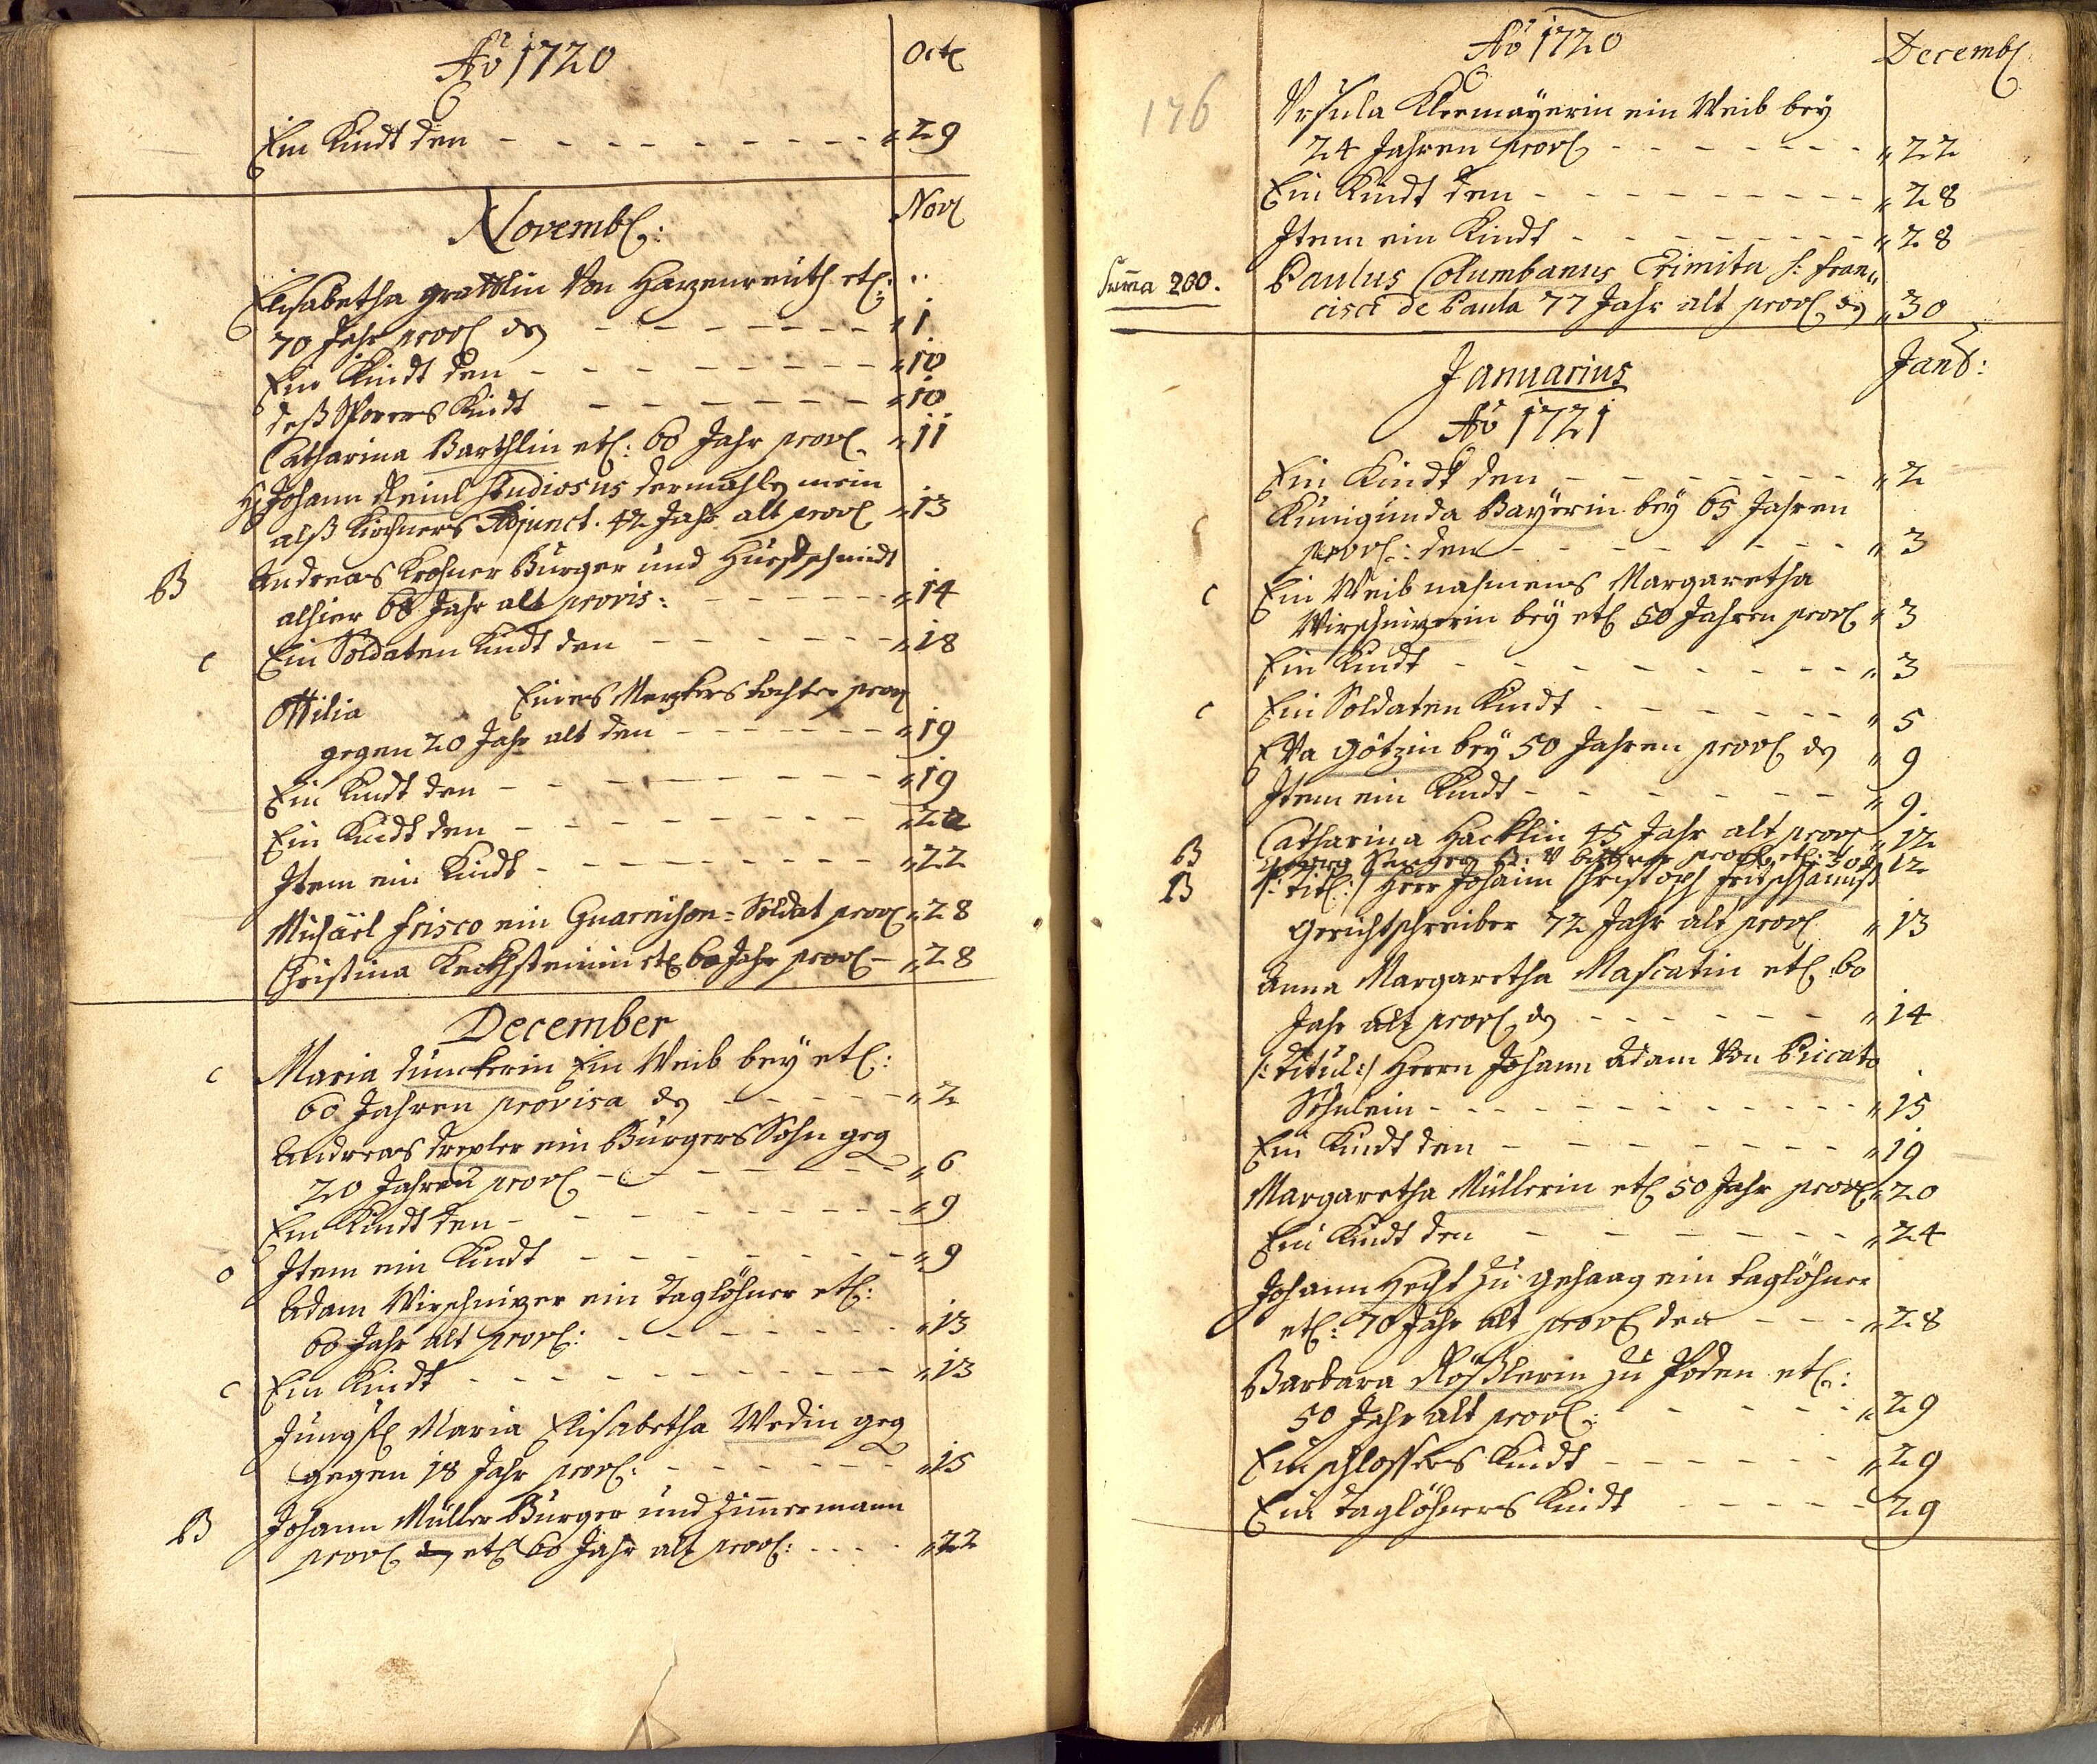 Aõ 1720
Octb
Ein Kindt den - - - - - - - - - " 29
Novemb:
Nov
Elisabetha Grattlin Von Harzenreuth etl:
70 Jahr prov: den - - - - - - - " 1
Ein Kindt den - - - - - - - - " 10
deß Sporers Kindt - - - - - - " 10
Catharina Barthlin etl: 60 Jahr prov. " 11
H: Johann Reinl Studiosus dermahls mein
alß Kirchners Adjunct. 42 Jahr alt prov " 13
B Andreas Krohner Burger und Huefschmidt
alhier 68 Jahr alt provis: - - - - - " 14
c Ein Soldaten Kindt den - - - - - - " 18
Ottilia Eines Metzkers tochter prov
gegen 20 Jahr alt den - - - - - - " 19
Ein Kindt den - - - - - - - - " 19
Ein Kindt den - - - - - - - - " 22
Item ein Kindt - - - - - - - - " 22
Michäel Frisco ein Guarnison-Soldat prov " 28
Christina Kechsteinin etl 60 Jahr prov - " 28
December
c Maria Dunckerin Ein Weib bey etl:
60 Jahren provisa den - - - - - " 2
Andreas Drexler ein Burgers Sohn geg
20 Jahren prov - - - - - - - " 6
Ein Kindt den - - - - - - - - " 9
o Item ein Kindt - - - - - - - " 9
Adam Wirschnizer ein Taglöhner etl:
60 Jahr alt prov: - - - - - - - " 13
c Ein Kindt - - - - - - - - - " 13
Jungf Maria Elisabetha Wedin geg
gegen 18 Jahr prov: - - - - - - " 15
B Johann Müller Burger und Zimmermann
prov den etl 60 Jahr alt prov: - - - - " 22
Aõ 1720
Decemb
176
Ursula Kleemayerin ein Weib bey
24 Jahren prov - - - - - - - " 22
Ein Kindt den - - - - - - - - - " 28
Item ein Kindt - - - - - - - - " 28
Suma 200. Paulus Columbanus Erimita S: Fran"
cisci de Paula 77 Jahr alt prov. den " 30
Januarius
Jan:
Aõ 1721
Ein Kindt den - - - - - - - - " 2
c Kunigunda Bayerin bey 65 Jahren
prov: den - - - - - - - - - " 3
c Ein Weib nahmens Margaretha
Wirschnizerin bey etl 50 Jahren prov " 3
Ein Kindt - - - - - - - - - " 3
c Ein Soldaten Kindt - - - - - - - " 5
EVa Götzin bey 50 Jahren prov den " 9
Item ein Kindt - - - - - - - - " 9.
B Catharina Hacklin 45 Jahr alt prov " 12
12
B /: Titl: / Herr Johann Christoph Fritschhannß
Gerichtschreiber 72 Jahr alt prov " 13
Anna Margaretha Mascatin etl 60
Jahr alt prov den - - - - - - " 14
/: Titul: / Herrn Johann Adam Von Piccato
Söhnlein - - - - - - - - - - " 15
Ein Kindt den - - - - - - - - " 19
Margaretha Müllerin etl 50 Jahr prov " 20
Ein Kindt den - - - - - - - " 24
Johann Hecht zu Gehaag ein Taglöhner
etl: 70 Jahr alt prov den - - - " 28
Barbara Rößlerin zu Poden etl:
50 Jahr alt prov: - - - - - - " 29
Ein schlossers Kindt - - - - - - " 29
Ein Taglöhners Kindt - - - - - 29